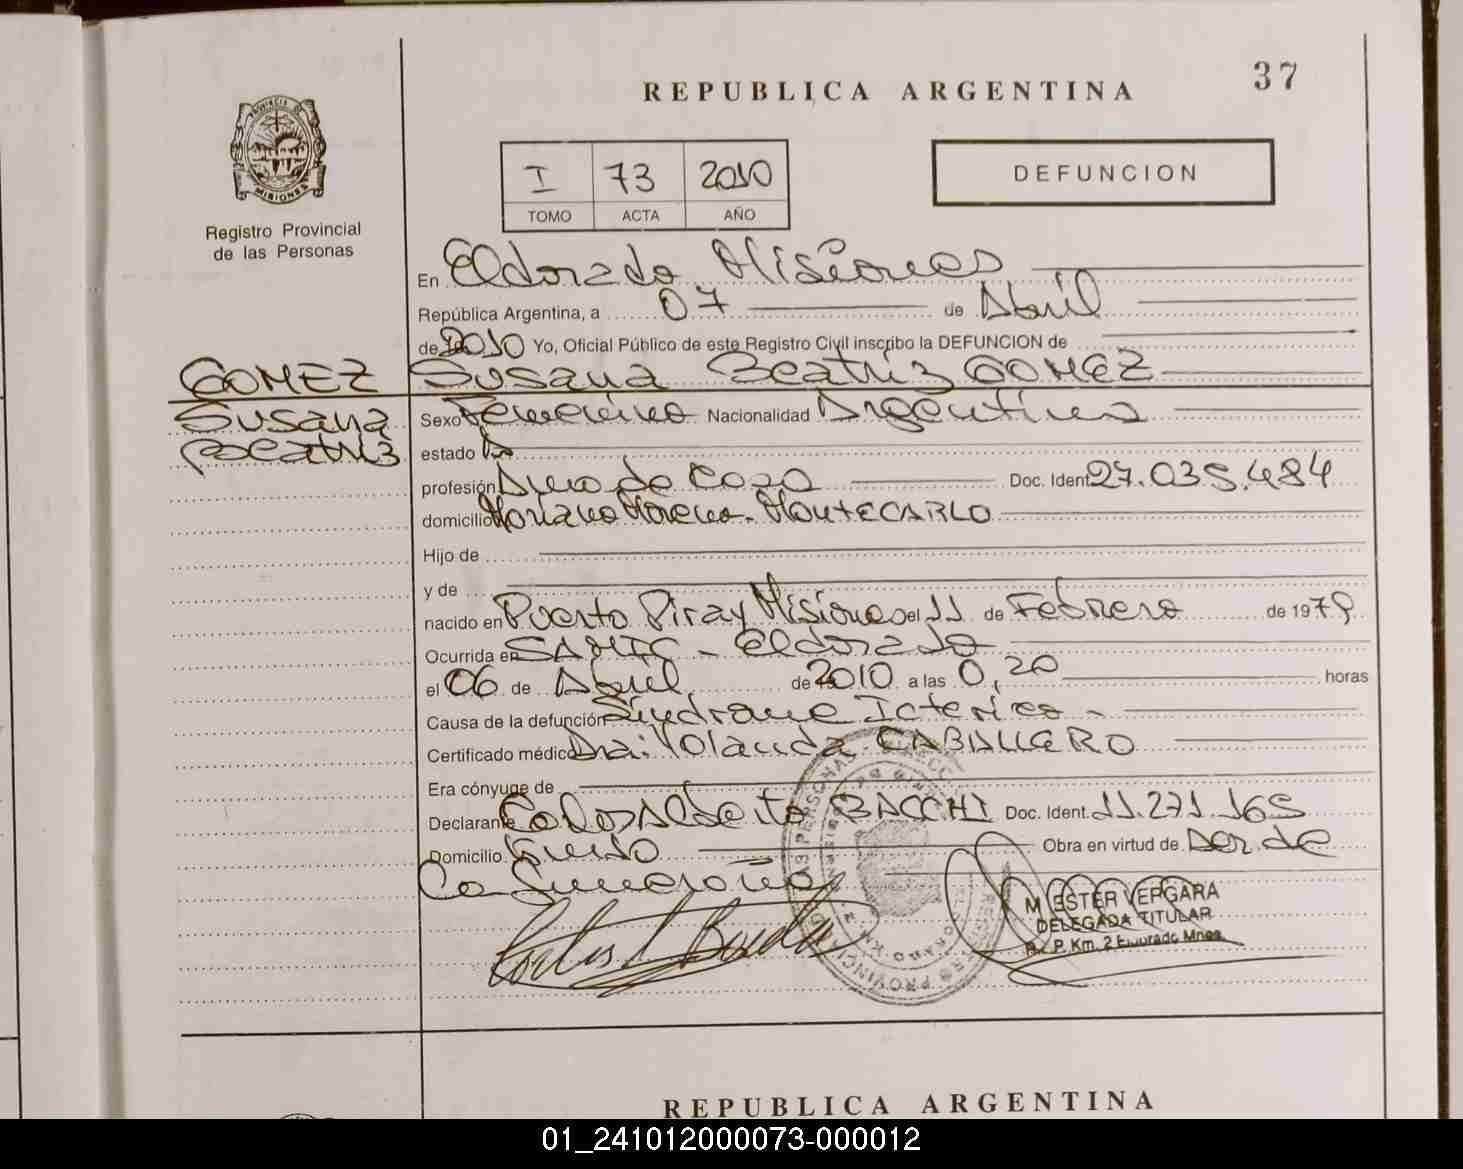 37
REPUBLICA ARGENTINA
I 73 2010
TOMO ACTA AÑO
DEFUNCION
Registro Provincial
de las Personas
En Eldorado Misiones
República Argentina, a 07 de Abril
de 2010 Yo, Oficial Público de este Registro Civil inscribo la DEFUNCION de
GOMEZ
Susana
Beatriz
Susana Beatriz GOMEZ
Sexo Femenino Nacionalidad Argentina
estado
profesión Ama de Casa Doc. Ident. 27.035.484
domicilio Mariano Moreno - MONTECARLO
Hijo de
y de
nacido en Puerto Piray Misiones el 11 de Febrero de 1979
Ocurrida en SAMIC - Eldorado
el 06 de Abril de 2010 a las 0,20 horas
Causa de la defunción Sindrome Icterico -
Certificado médico Dra. Yolanda CABALLERO
Era cónyuge de
Declarante Carlos Alberto BACCHI Doc. Ident. 11.271.165
Domicilio Obra en virtud de Ser de
La Funeraria
M ESTER VERGARA
DELEGADA TITULAR
R. P. Km. 2 Eldorado Mnes.
REPUBLICA ARGENTINA
01_241012000073-000012